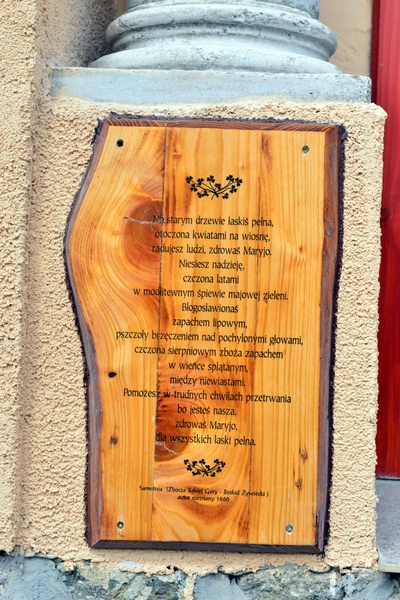 Na starym drzewie łaskiś pełna,
otoczona kwiatami na wiosnę,
radujesz ludzi, zdrowaś Maryjo.
Niesiesz nadzieję,
czczona latami
w modlitewnym śpiewie majowej zieleni.
Błogosławionaś
zapachem lipowym,
pszczoły brzęczeniem nad pochylonymi głowami,
czczona sierpniowym zboża zapachem
w wieńce splątanym,
między niewiastami.
Pomożesz w trudnych chwilach przetrwania
bo jesteś nasza,
zdrowaś Maryjo,
dla wszystkich łaski pełna.
Samotnia (Zbocza Babiej Góry - Beskid Żywiecki )
autor nieznany 1860